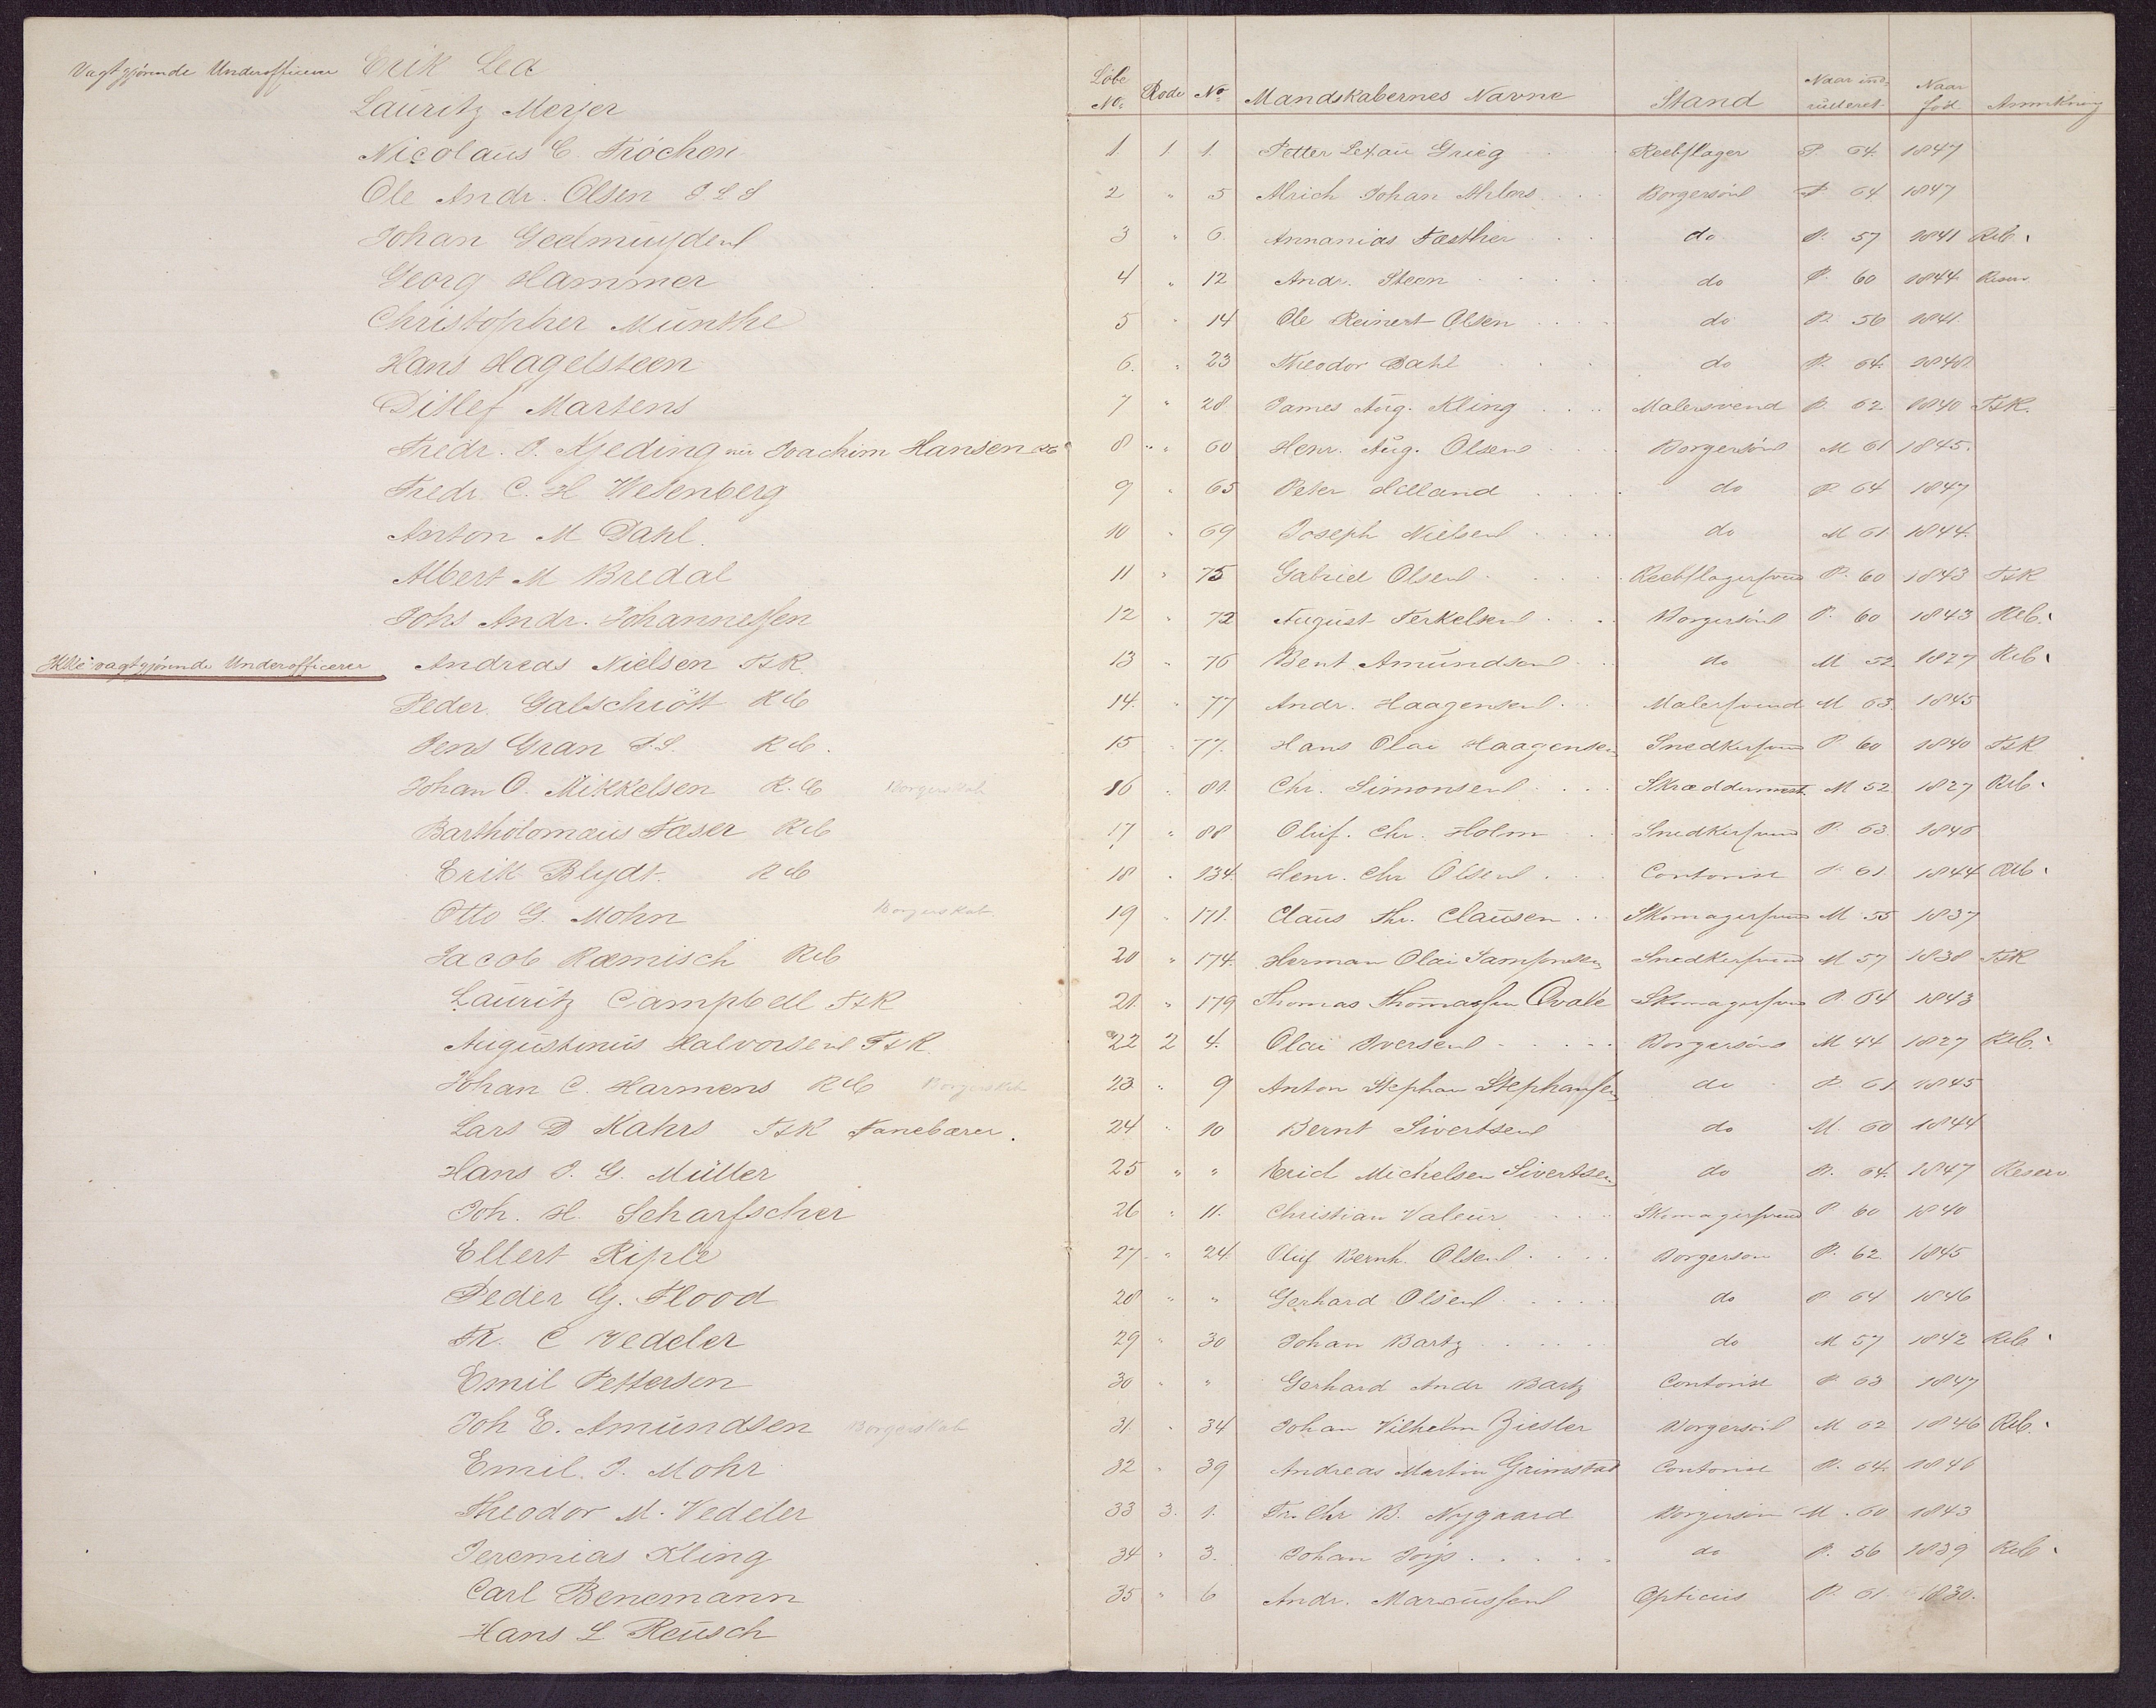 Vagtgjørende Underofficerer Erik Lea
Lauritz Meyer
Nicolaus C. Trochen
Ole Andr. Olsen
Johan Geelmuyden
Georg Hammer
Christopher Münthe
Hans Hagelsteen
Ditlef Martens
Fredr. J. Kjeding Joachim Hansen
Fredr C. H Wesenberg
Anton M Dahl.
Albert M Bredal
Johs Andr. Johannessen
Ikke vagtgjørende Underofficerer Andreas Nielsen TsK
Peder Galtschiött Reb
Jens Gran Reb.
Johan O. Mikkelsen Reb Borgerskab
Bartholomæus Fæser Reb
Erik Blydt. Reb
Otto G. Mohn Borgerskab
Jacob Ræmisch Reb
Lauritz Campbell TsK
Augustinus Halvorsen TsK
Johan C. Harmens Reb Borgerskab
Lars D Kahrs TsK Fanebærer.
Hans J. G. Müller
Joh. H. Scharfscher
Ellert Riple
Peder G. Flood
Fr. C Vedeler
Emil Pettersen
Joh E. Amundsen Borgerskab
Emil. J. Mohr
Theodor M. Vedeler
Jeremias Kling
Carl Benemann
Hans L Reusch
Løbe No. Rode No. Mandskabernes Navne Stand Naar indrulleret Naar fød. Anmrkning
1. 1 1. Petter Lexau Grieg Reebslager P. 64. 1847
2 " 5 Alrich Johan Ahlers Borgersøn P 64 1847
3 " 6. Annanias Fæsther do P. 57 1841 Reb.
4 " 12 Andr. Steen do P. 60 1844 Reserv
5 " 14 Ole Reinert Olsen do P. 56 1841.
6. " 23 Theodor Dahl do P. 64. 1848
7 " 28 James Aug. Kling Malersvend P. 62 1840 TsK.
8 " 60 Henr. Aug. Olsen Borgersøn M 61 1845.
9 " 65 Peter Helland do P. 64 1847
10 " 69 Joseph Nielsen do M 61 1844.
11 " 75 Gabriel Olsen Reebslagersvend P. 60 1843 TsK
12 " 72 August Terkelsen Borgersøn P. 60 1843 Reb.
13 " 76 Bent Amundsen do M 52 1827 Reb
14. " 77 Andr. Haagensen Malersvend M 63. 1845
15 " 77. Hans Olai Haagensen Snedkersvend P 60 1840 TsK
16 " 81. Chr. Simonsen Skræddermest. M 52 1827 Reb.
17 " 88 Oluf. Chr. Holm Snedkersvend P. 63 1846
18 " 134. Henr. Chr Olsen Contorist P. 61 1844 Reb.
19 " 171. Claus Chr. Clausen Skomagersvend M 55 1837
20 " 174. Herman Olai Samsonsen Snedkersvend M 57 1838 TsK
21. " 179 Thomas Thomassen Qvale Skomagersvend P. 64 1843
22 2 4. Olai Iversen Borgersøn M 44 1827 Reb.
23 " 9 Anton Stephan Stephansen do P. 61 1845
24 " 10 Bernt Sivertsen do M. 60 1844
25 " " Erich Michelsen Sivertsen do P. 64. 1847 Reserv
26 " 11. Christian Valeur Skomagersvend P 60 1840
27 " 24. Oluf Bernh. Olsen Borgersøn P. 62 1845
28 " " Gerhard Olsen do P 64 1846
29 " 30 Johan Bartz do M 57 1842 Reb
30 " " Gerhard Andr Bartz Contorist P. 63 1847
31 " 34 Johan Vilhelm Ziesler Borgersøn M 62 1846 Reb.
32 " 39 Andreas Martin Grimstad Contorist P. 64. 1846
33 3. 1. Fr. Chr B. Nygaard Borgersøn M. 60 1843
34 " 3. Johan do P. 56 1839 Reb.
35 " 6 Andr. Marcussen Opticus P. 61 1830.